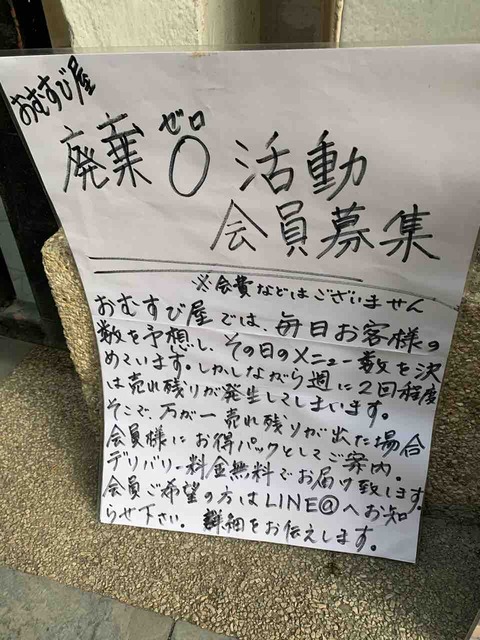 おむすび屋
ゼロ
廃棄0活動
会員募集
※会費などはございません
おむすび屋では、毎日お客様の
数を予想し、その日のメニュー数を決
めています。しかしながら週に2回程度
は売れ残りが発生してしまいます。
そこで、万が一売れ残りが出た場合
会員様にお得パックとしてご案内。
デリバリー料金無料でお届け致します。
会員ご希望の方はLINE@へお知
らせ下さい。詳細をお伝えします。